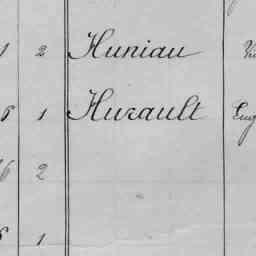 1 2 Huniau
6 1 Hurault Eug
6 2
6 1